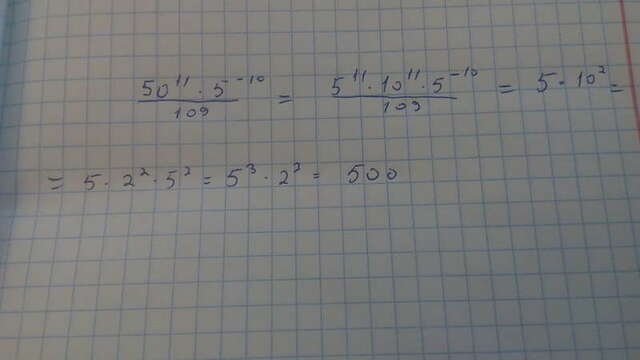 50¹¹ · 5⁻¹⁰ / 10⁹ = 5¹¹ · 10¹¹ · 5⁻¹⁰ / 10⁹ = 5 · 10² =
= 5 · 2² · 5² = 5³ · 2² = 500